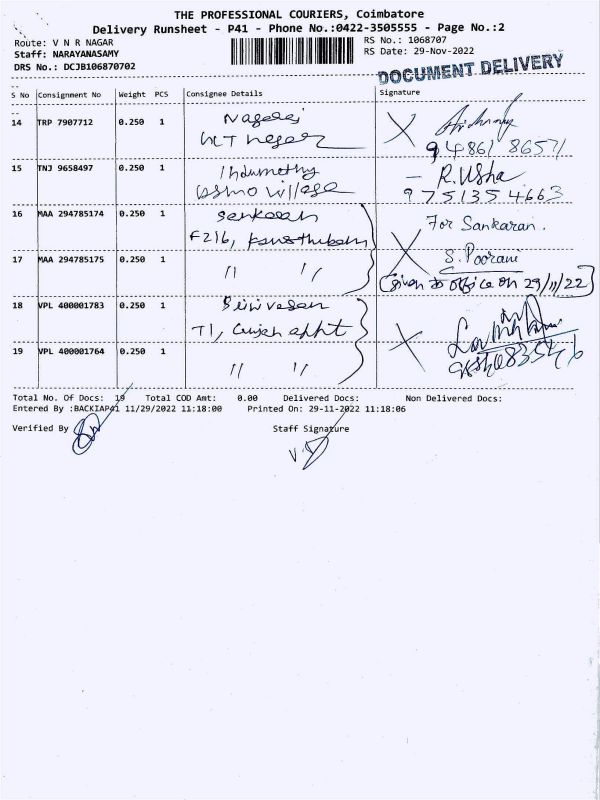 THE PROFESSIONAL COURIERS, Coimbatore
Delivery Runsheet - P41 - Phone No.:0422-3505555 - Page No.:2
Route: V N R NAGAR
RS No.: 1068707
Staff: NARAYANASAMY
RS Date: 29-Nov-2022
DRS No.: DCJB106870702
DOCUMENT DELIVERY
S No Consignment No Weight PCS Consignee Details Signature
14 TRP 7907712 0.250 1 Nagaraj
94861 86571
15 TNJ 9658497 0.250 1 Indumathy - R. Usha
village 975135 4663
16 MAA 294785174 0.250 1 Sankaran For Sankaran.
F216,
17 MAA 294785175 0.250 1 " " S. Poorani
(Given to office on 29/11/22)
18 VPL 400001783 0.250 1 Srinivasan
T1, appt
19 VPL 400001764 0.250 1 " "
Total No. Of Docs: 19 Total COD Amt: 0.00 Delivered Docs: Non Delivered Docs:
Entered By :BACKIAP41 11/29/2022 11:18:00 Printed On: 29-11-2022 11:18:06
Verified By Staff Signature